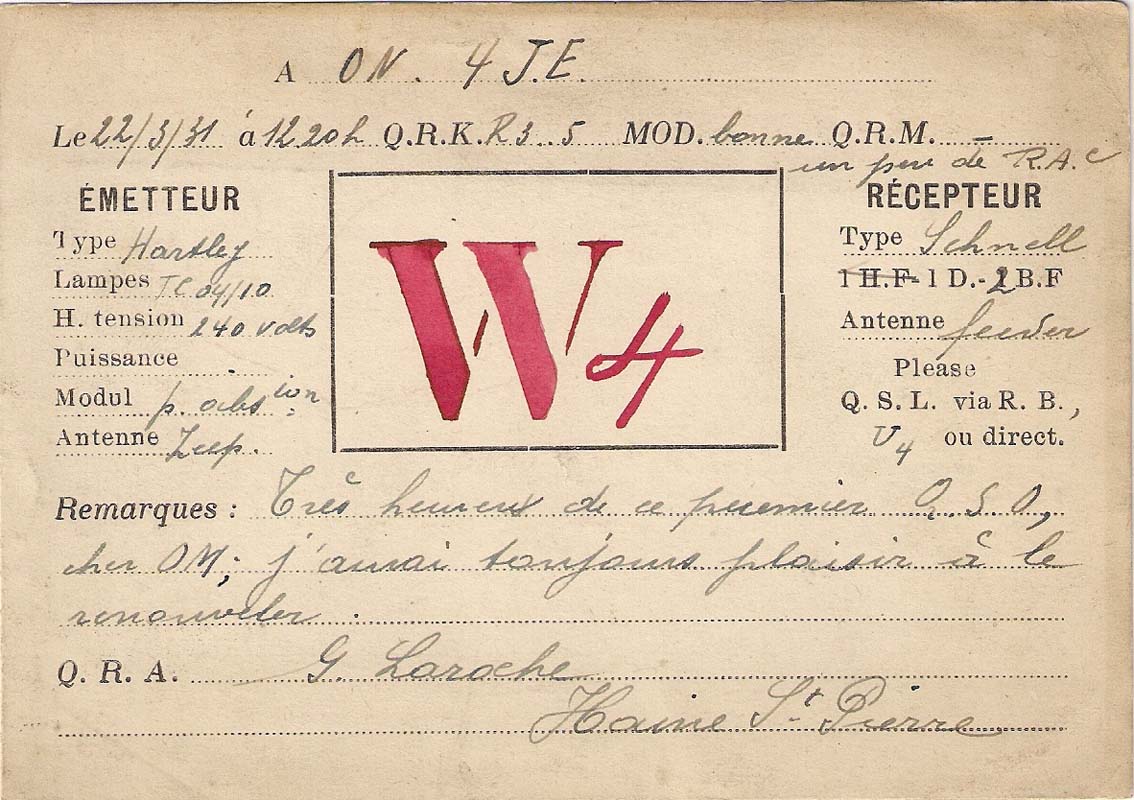 A ON. 4 J.E.
Le 22/3/31 á 12 20h Q.R.K. R3..5 MOD. bonne Q.R.M. –
un peu de R.A.C
ÉMETTEUR
Type Hartley
Lampes TC 04/10
H. tension 240 volts
Puissance
Modul p. abstion
Antenne Zeep.
W4
RÉCEPTEUR
Type Schnell
1 H.F- 1 D.- 2 B.F
Antenne feeder
Please
Q. S. L. via R. B.,
U4 ou direct.
Remarques : Très heureux de ce premier Q.S.O,
cher OM; j'aurai toujours plaisir à le
renouveler.
Q. R. A. G. Laroche
Haine St Pierre